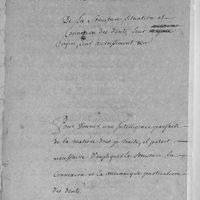 De la Structure, Situation et
Connexion des dents, leur
Origine, leur accroissement, &c.
Pour donner une Intelligence parfaite
de la matiere dont je traite, il paroit
necessaire d'expliquer la Structure, la
Connexion et la mecanique particuliere
des dents.